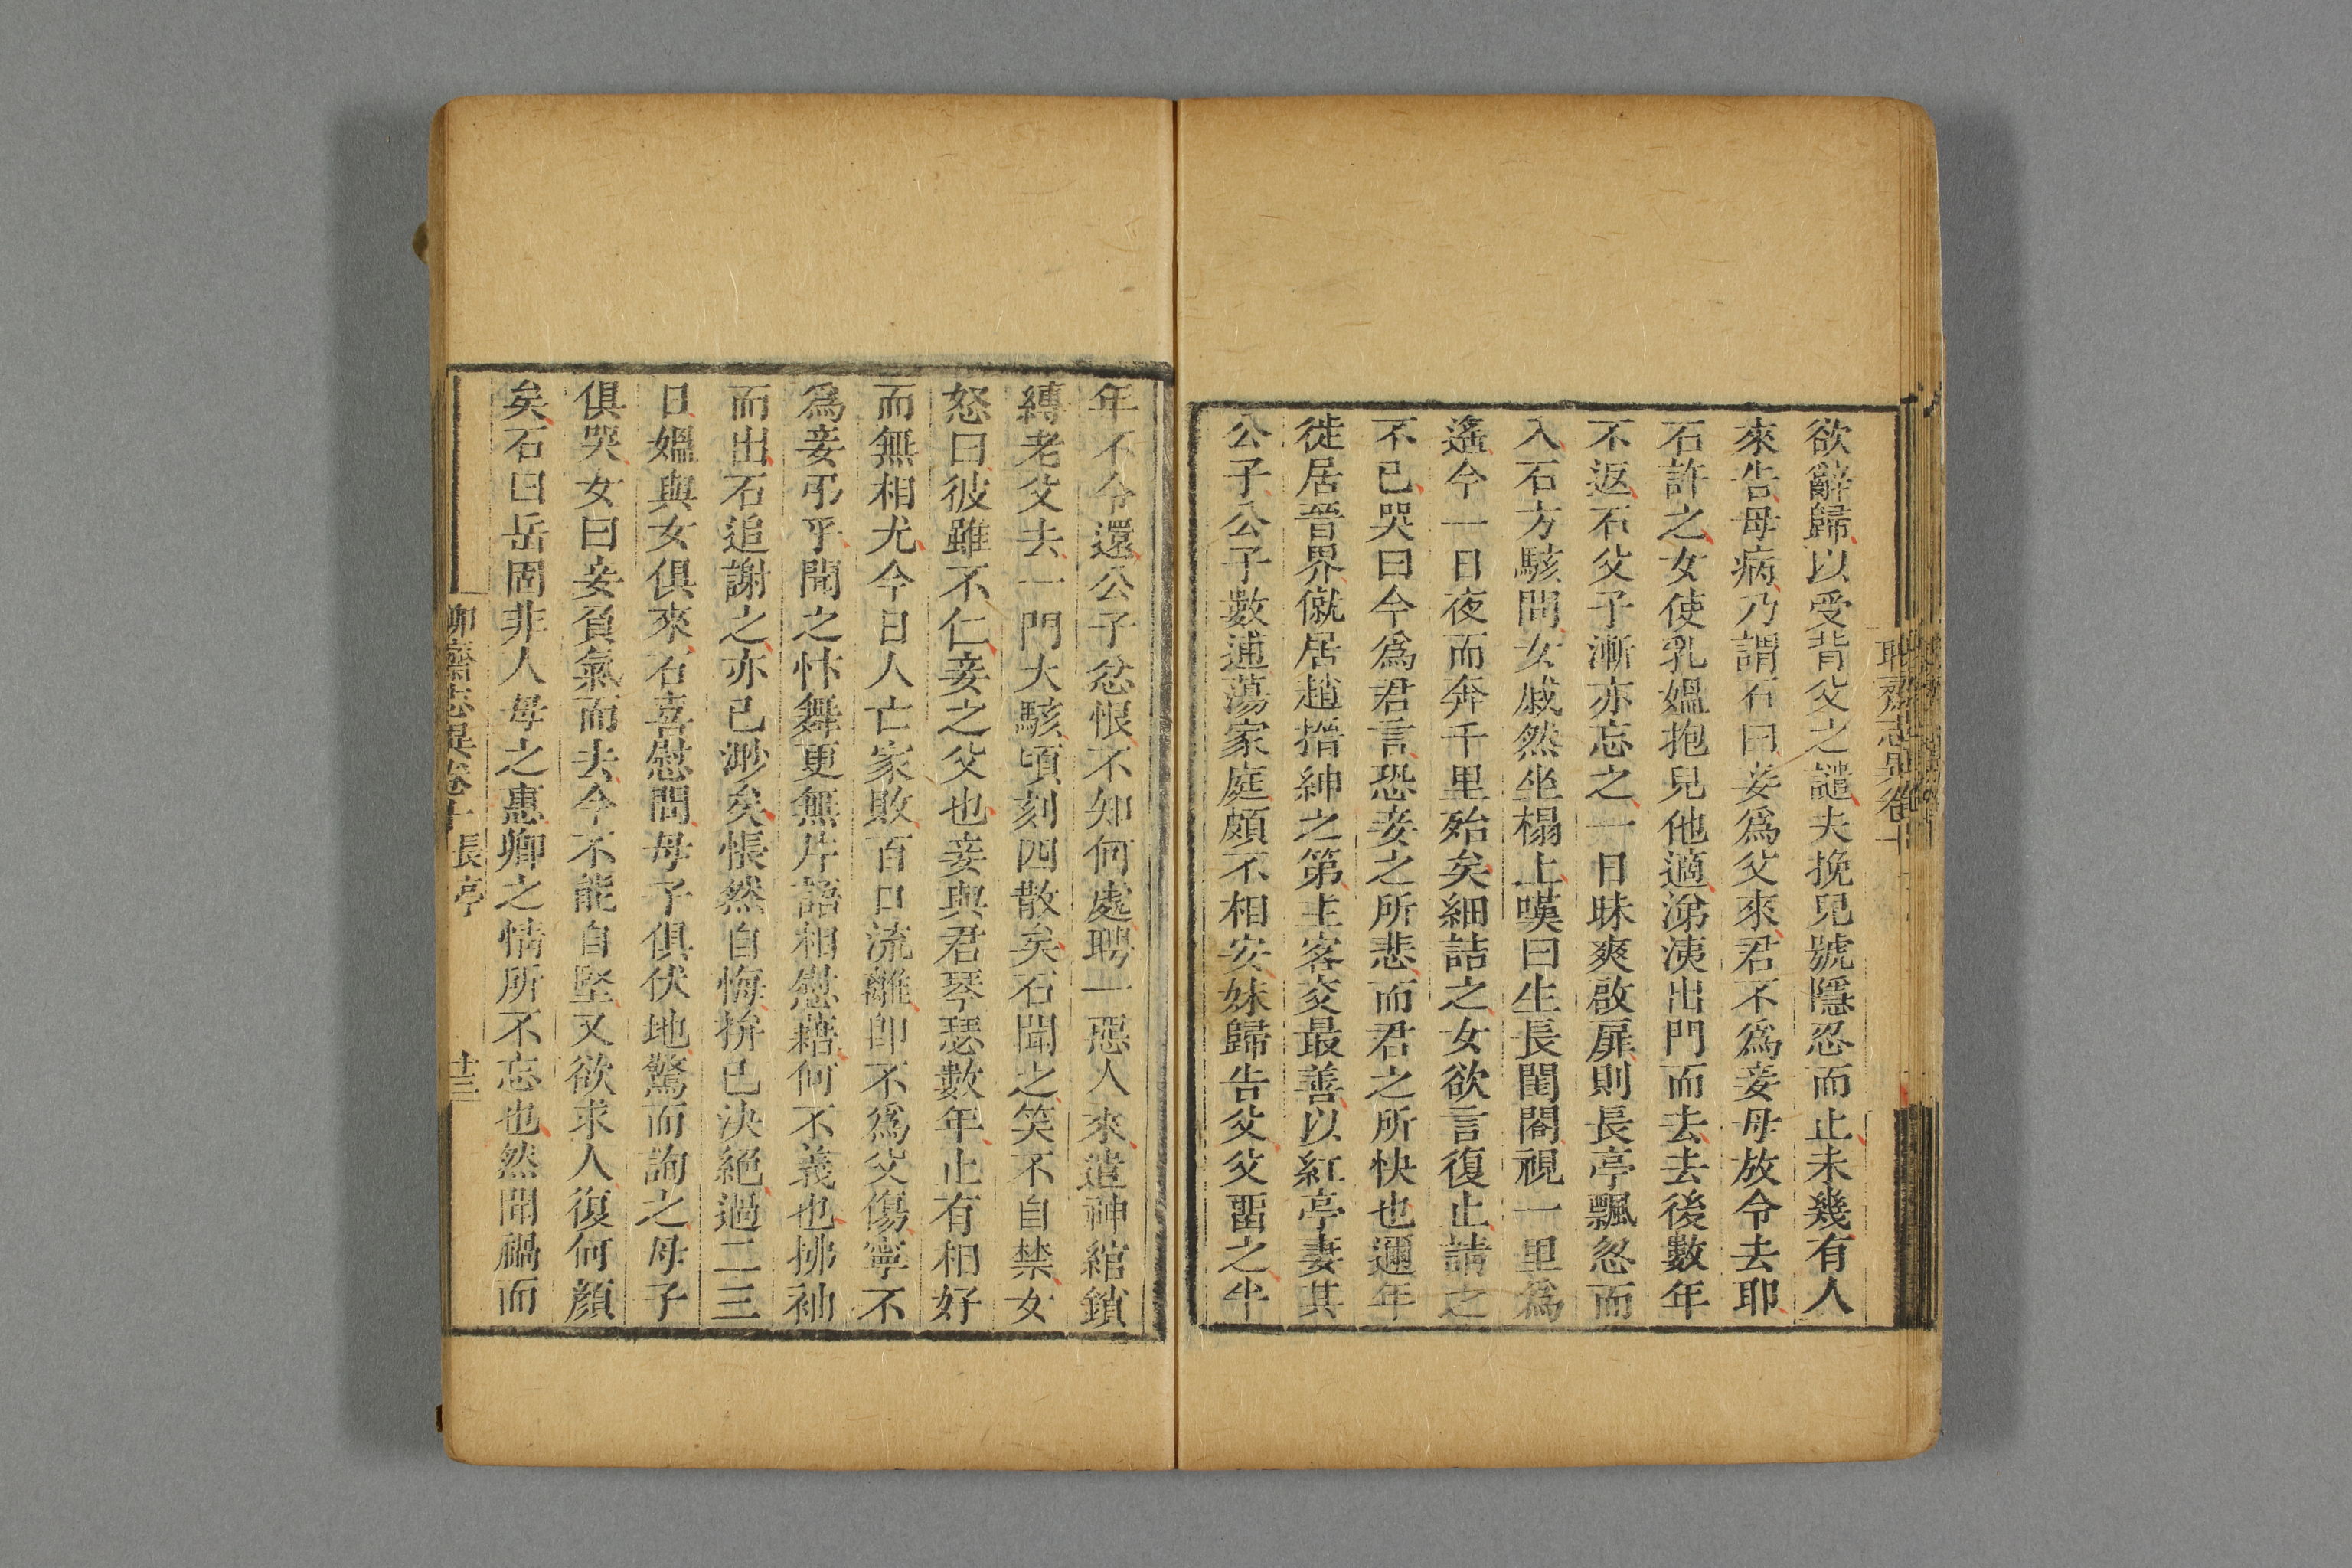 欲辭歸以受背父之譴夫挽兒號隱忍而止未幾有人
來告母病乃謂石曰妾為父來君不為妾母放令去耶
石許之女使乳媼抱兒他適涕洟出門而去去後數年
不返石父子漸亦忘之一日昧爽啟扉則長亭飄忽而
入石方駭問女戚然坐榻上嘆曰生長閨閣視一里為
遙今一日夜而奔千里殆矣細詰之女欲言復止請之
不已哭曰今為君言恐妾之所悲而君之所快也邇年
徙居晉界僦居趙搢紳之第主客交最善以紅亭妻其
公子公子數逋蕩家庭頗不相安妹歸告父父畱之半
年不令還公子忿恨不知何處聘一惡人來遣神綰鎖
縛老父去一門大駭頃刻四散矣石聞之笑不自禁女
怒曰彼雖不仁妾之父也妾與君琴瑟數年止有相好
而無相尤今日人亡家敗百口流離即不為父傷寧不
為妾弔乎聞之忭舞更無片語相慰藉何不義也拂袖
而出石追謝之亦已渺矣悵然自悔拚已決絕過二三
日媼與女俱來石喜慰問母子俱伏地驚而詢之母子
俱哭女曰妾負氣而去今不能自堅又欲求人復何顏
矣石曰岳固非人母之惠卿之情所不忘也然聞禍而
聊齋志異卷十 長亭 十三